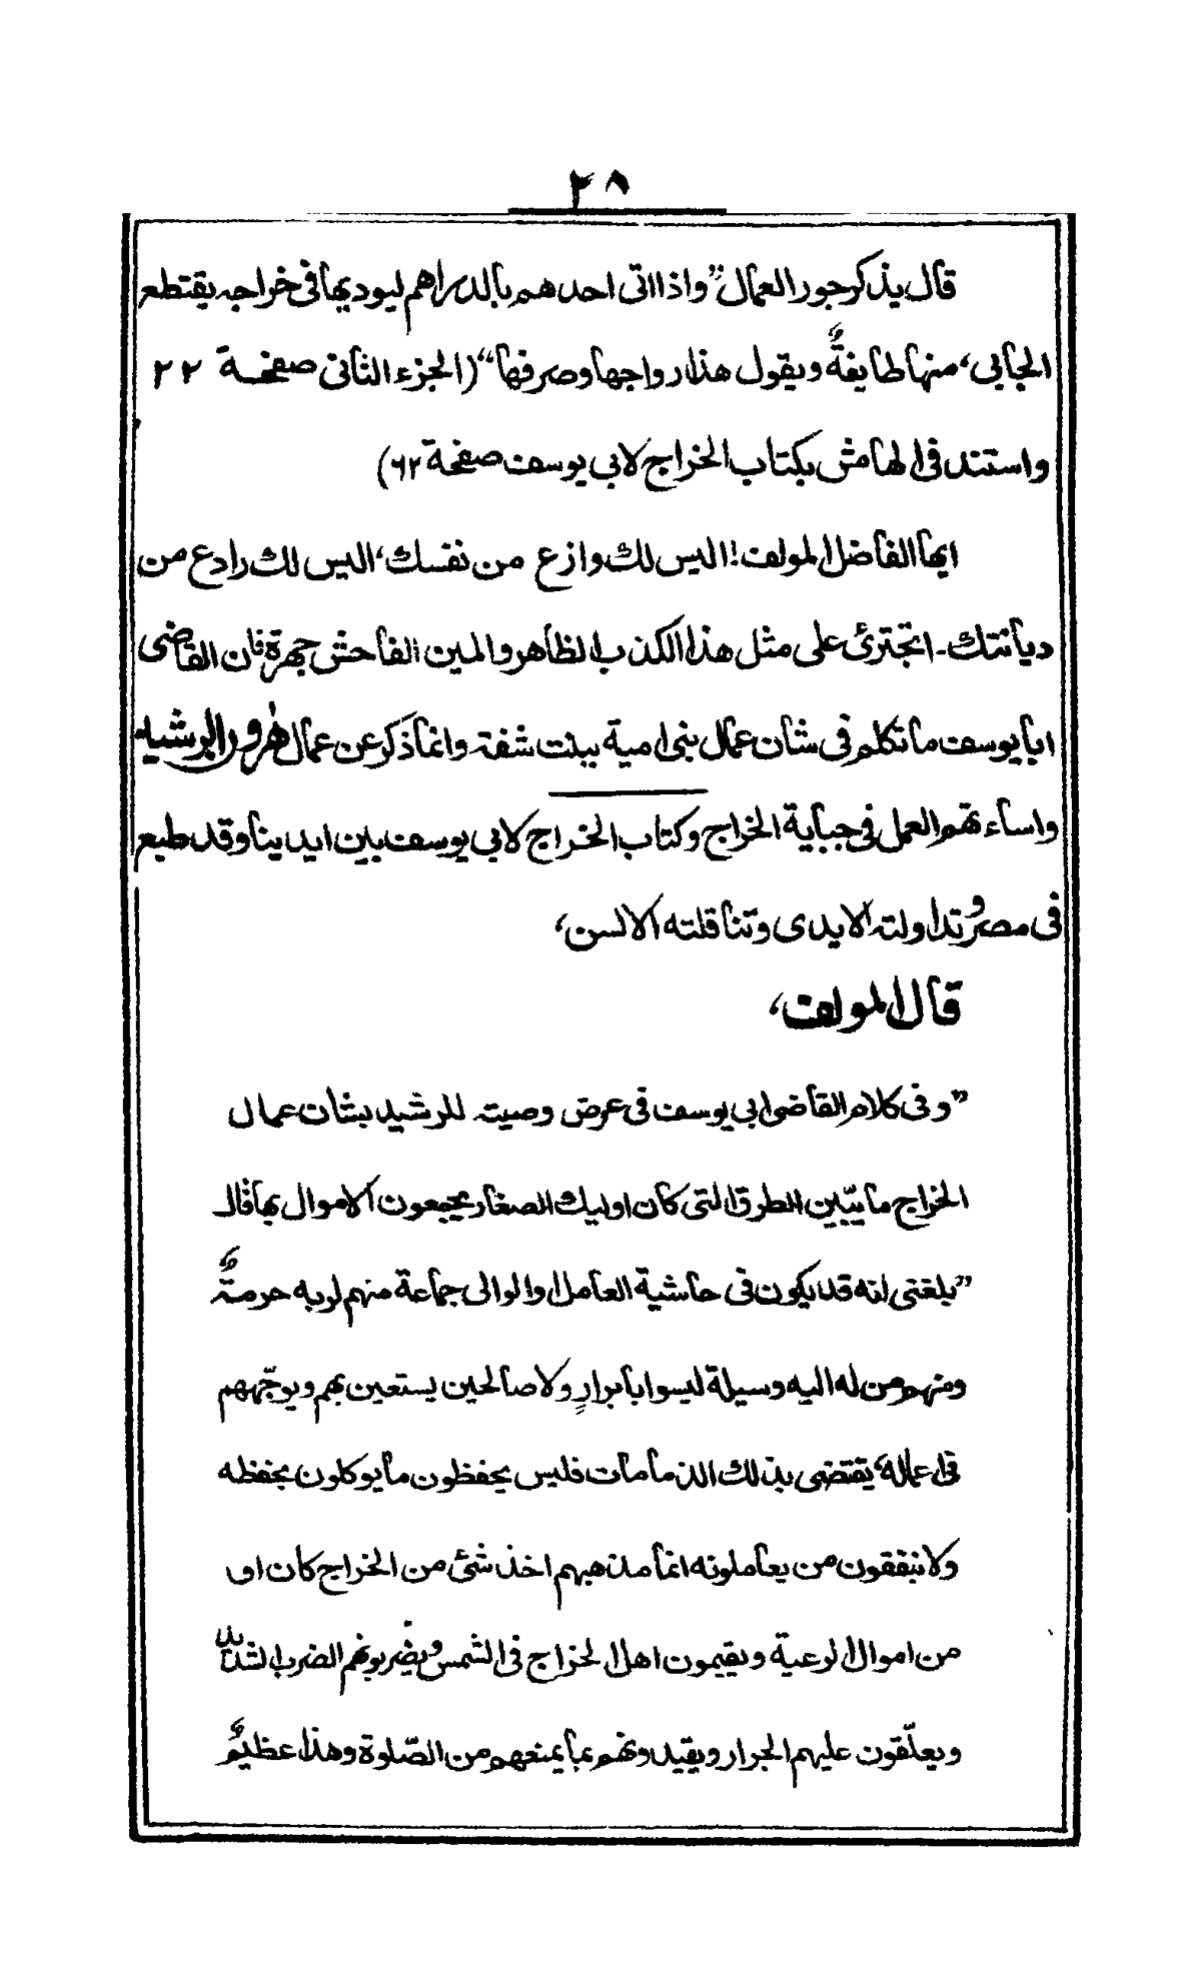 ٢٨
قال يذكر جور العمال "واذا اتى احدهم بالدراهم ليوديها فى خراجه يقتطع
الجابى، منها طايفةٌ ويقول هذا رواجها وصرفها" (الجزء الثانى صفحة ٢٢
واستند فى الهامش بكتاب الخراج لابى يوسف صفحة ٦٢)
ايها الفاضل المولف! اليس لك وازع من نفسك، اليس لك رادع من
ديانتك۔ اتجترئ على مثل هذا الكذب الظاهر والمين الفاحش جهرة فان القاضى
ابا يوسف ما تكلم فى شان عمال بنى امية ببنت شفة وانما ذكر عن عمال هٰرون الرشيد
واساءتهم العمل فى جباية الخراج وكتاب الخراج لابى يوسف بين ايدينا وقد طبع
فى مصر وتداولته الايدى وتناقلته الالسن،
قال المولف،
"وفى كلام القاضى ابى يوسف فى عرض وصيته للرشيد بشان عمال
الخراج ما يبّين الطرق التى كان اوليك الصغار يجمعون الاموال بها قال
"بلغنى انه قد يكون فى حاشية العامل او الوالى جماعة منهم لربه حرمةٌ
ومنهم من له اليه وسيلة ليسوا بابرارٍ ولا صالحين يستعين بهم ويوجّههم
فى اعماله، يقتضى بذلك الذمامات فليس يحفظون ما يوكلون بحفظه
ولا ينفقون من يعاملونه انما مذهبهم اخذ شئ من الخراج كان او
من اموال الرعية ويقيمون اهل الخراج فى الشمس ويضربونهم الضرب الشديد
ويعلّقون عليهم الجرار ويقيدونهم بما يمنعهم من الصّلوة وهذا عظيمٌ